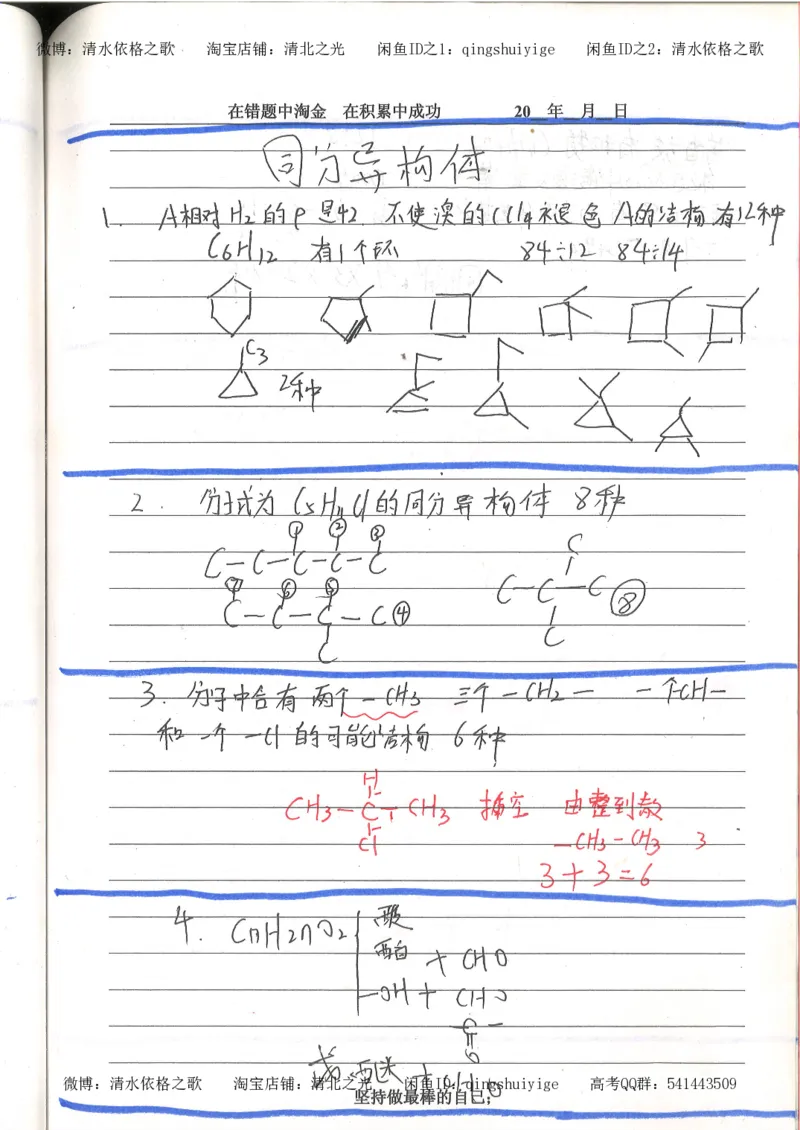 微博：清水依格之歌 淘宝店铺：清北之光 闲鱼ID之1：qingshuiyige 闲鱼ID之2：清水依格之歌
在错题中淘金 在积累中成功 20__年__月__日
同分异构体
1. A相对H2的ρ是42. 不使溴的CCl4褪色 A的结构有12种
C6H12 有1个环 84÷12 84÷14
C3
2种
2. 分子式为C5H11Cl的同分异构体 8种
① ② ③
C-C-C-C-C
⑦ ⑥ ⑤
C-C-C-C④
C
C
C-C-C⑧
C
3. 分子中含有两个-CH3 三个-CH2- 一个CH-
和一个-Cl的可能结构 6种
H
CH3-C-CH3 插空 由整到散
Cl
-CH3-CH3 3
3+3=6
4. CnH2nO2
酸
酯
-OH+CHO
C-
O
微博：清水依格之歌 淘宝店铺：清北之光 闲鱼ID：qingshuiyige 高考QQ群：541443509
坚持做最棒的自己；